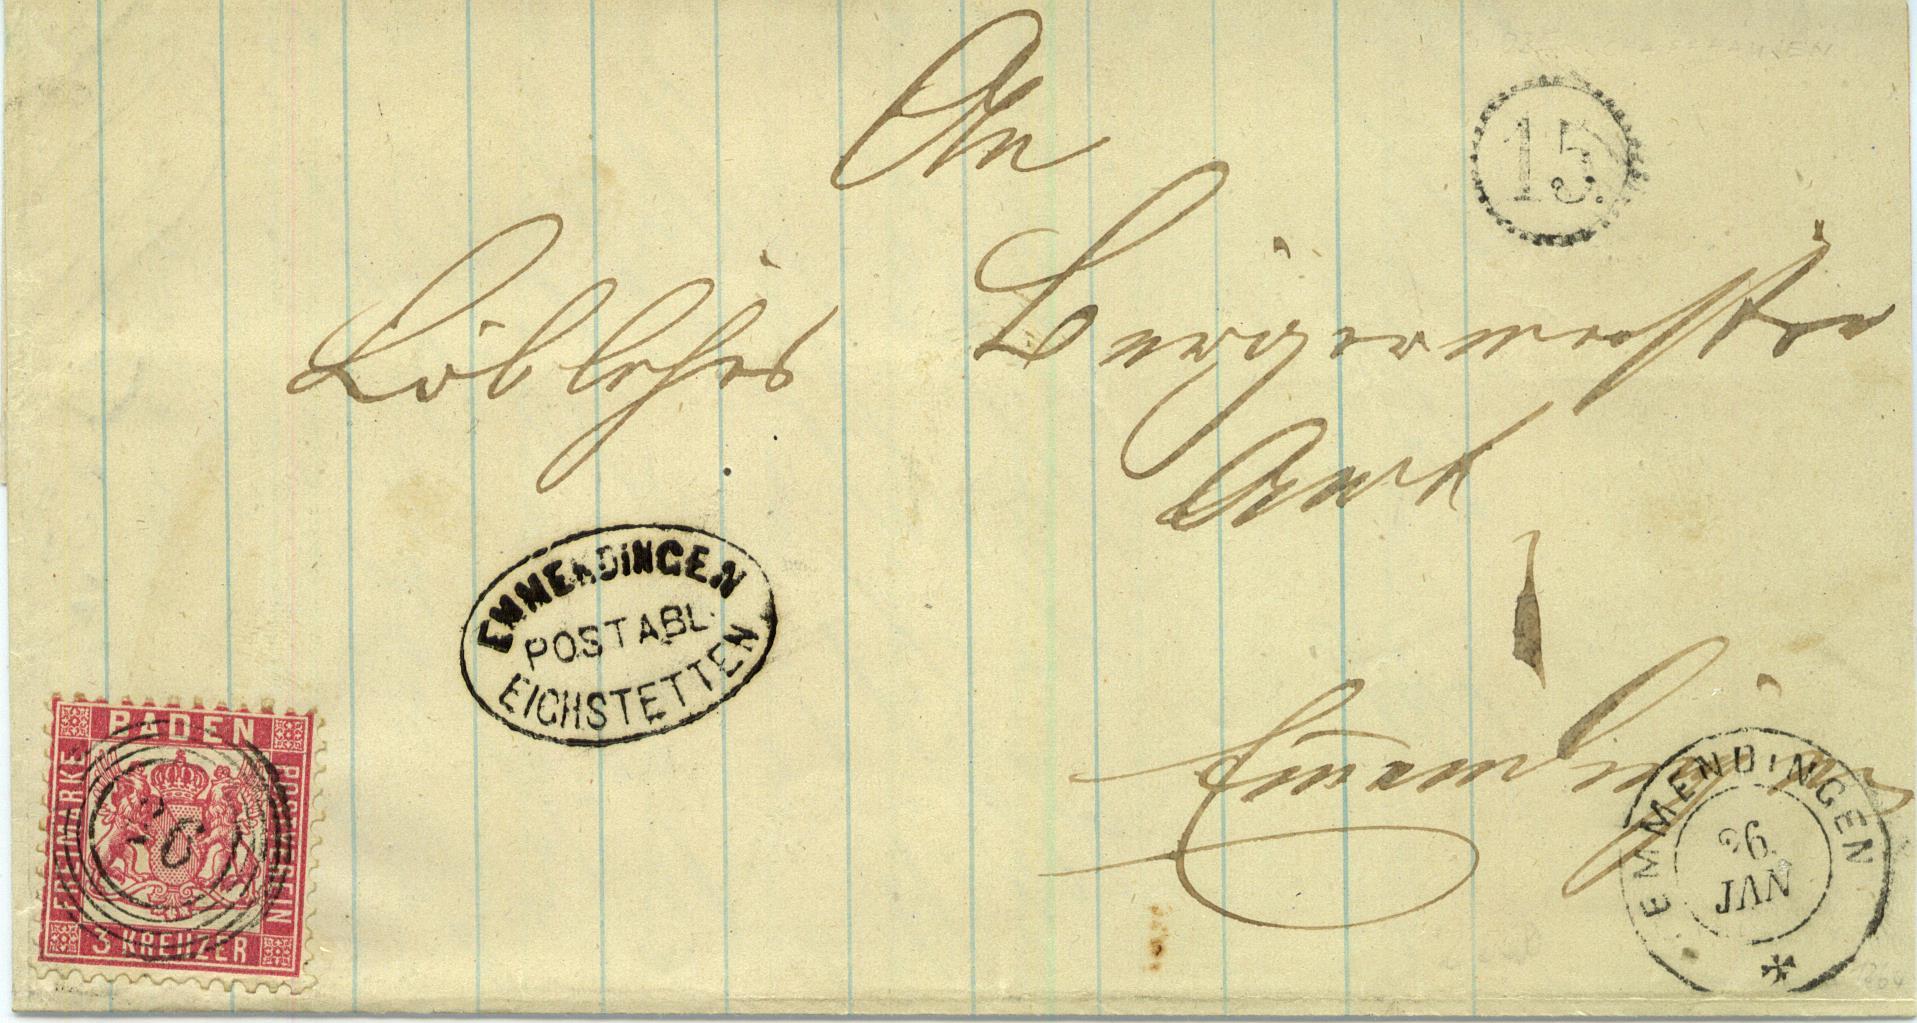 An
15.
Löbliches Bürgermeister
Amt
EMMENDINGEN
POSTABL.
EICHSTETTEN
Emmendingen
BADEN
FREIMARKE
POSTVEREIN
3 KREUZER
26
EMMENDINGEN
26
JAN